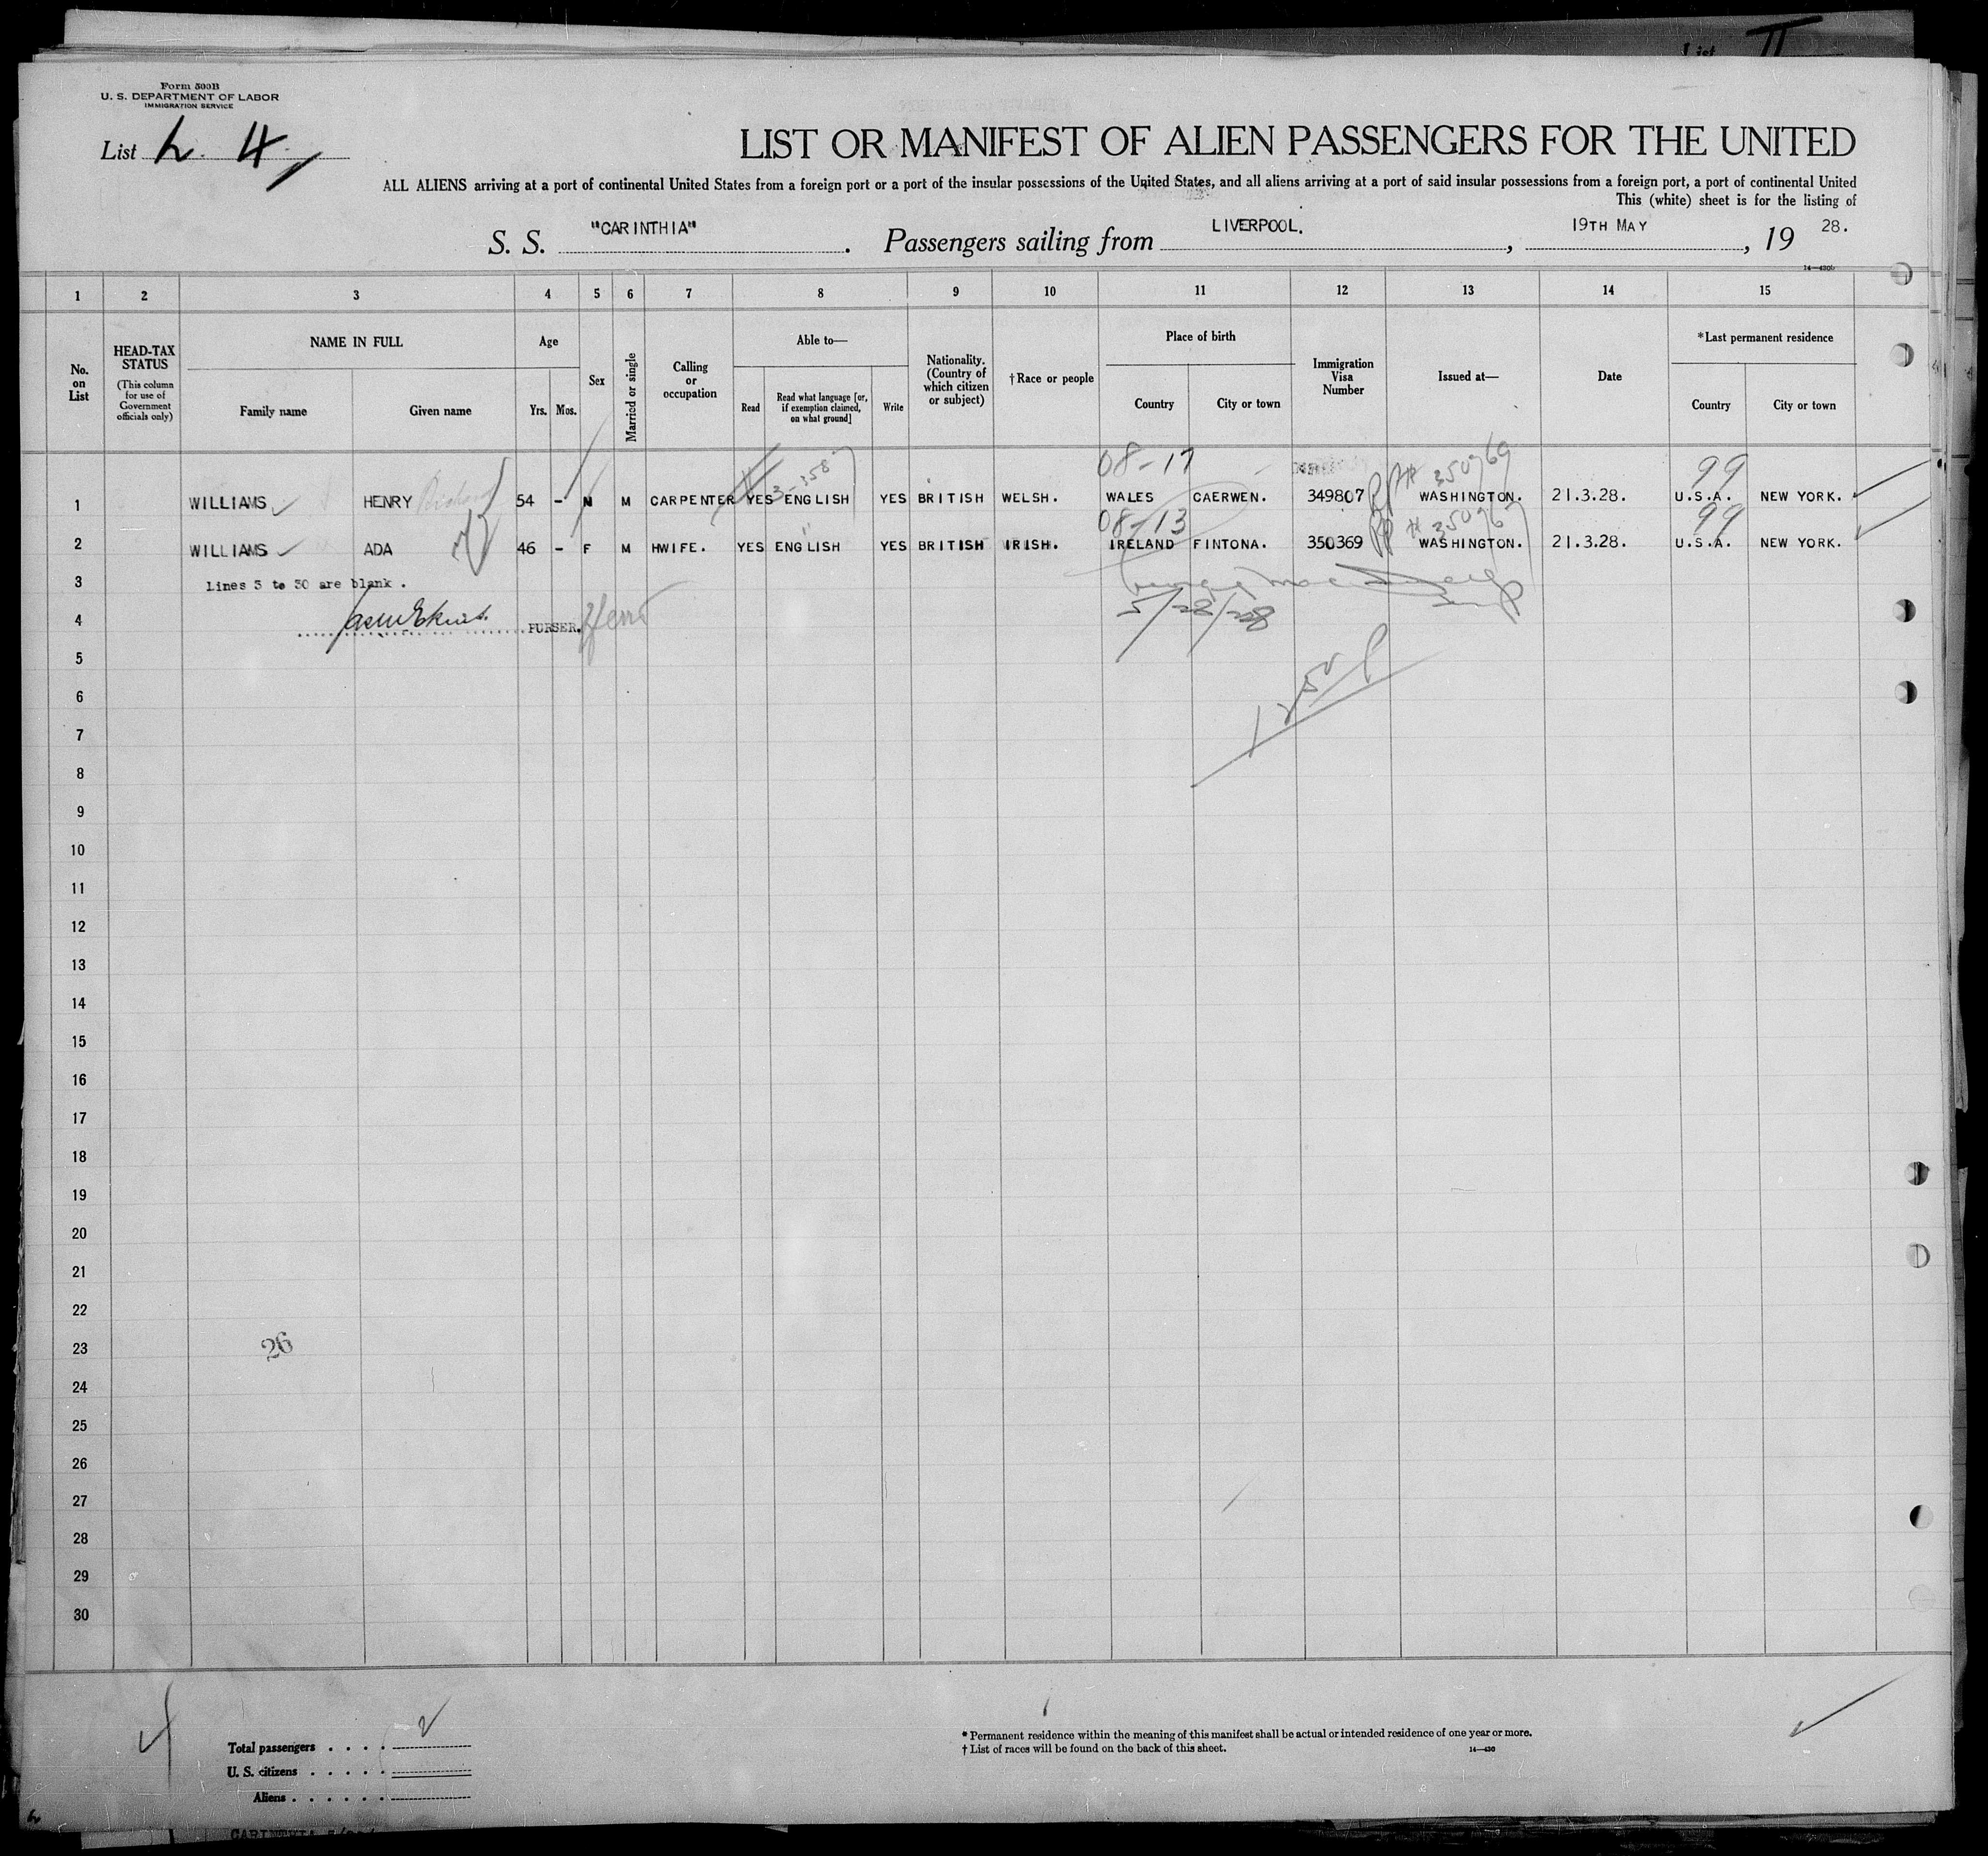 List II
Form 500B
U. S. DEPARTMENT OF LABOR
IMMIGRATION SERVICE
List 4
LIST OR MANIFEST OF ALIEN PASSENGERS FOR THE UNITED
ALL ALIENS arriving at a port of continental United States from a foreign port or a port of the insular possessions of the United States, and all aliens arriving at a port of said insular possessions from a foreign port, a port of continental United
This (white) sheet is for the listing of
S. S. "CARINTHIA" . Passengers sailing from LIVERPOOL. , 19TH MAY , 19 28.
1 2 3 4 5 6 7 8 9 10 11 12 13 14 15
No. on List
HEAD-TAX STATUS (This column for use of Government officials only)
NAME IN FULL Family name Given name
Age Yrs. Mos.
Sex
Married or single
Calling or occupation
Able to— Read Read what language [or, if exemption claimed, on what ground] Write
Nationality. (Country of which citizen or subject)
†Race or people
Place of birth Country City or town
Immigration Visa Number
Issued at—
Date
*Last permanent residence Country City or town
3-358 08-17 350769 99
1 WILLIAMS HENRY 54 - M M CARPENTER YES ENGLISH YES BRITISH WELSH. WALES CAERWEN. 349807 WASHINGTON. 21.3.28. U.S.A. NEW YORK.
08-13 99
2 WILLIAMS ADA 46 - F M HWIFE. YES ENGLISH YES BRITISH IRISH. IRELAND FINTONA. 350369 WASHINGTON. 21.3.28. U.S.A. NEW YORK.
3 Lines 3 to 30 are blank.
4 PURSER. 5/28/28
5
6
7
8
9
10
11
12
13
14
15
16
17
18
19
20
21
22
23 26
24
25
26
27
28
29
30
Total passengers . . . . 2
U. S. citizens . . . . .
Aliens . . . . . .
* Permanent residence within the meaning of this manifest shall be actual or intended residence of one year or more.
† List of races will be found on the back of this sheet. 14—430